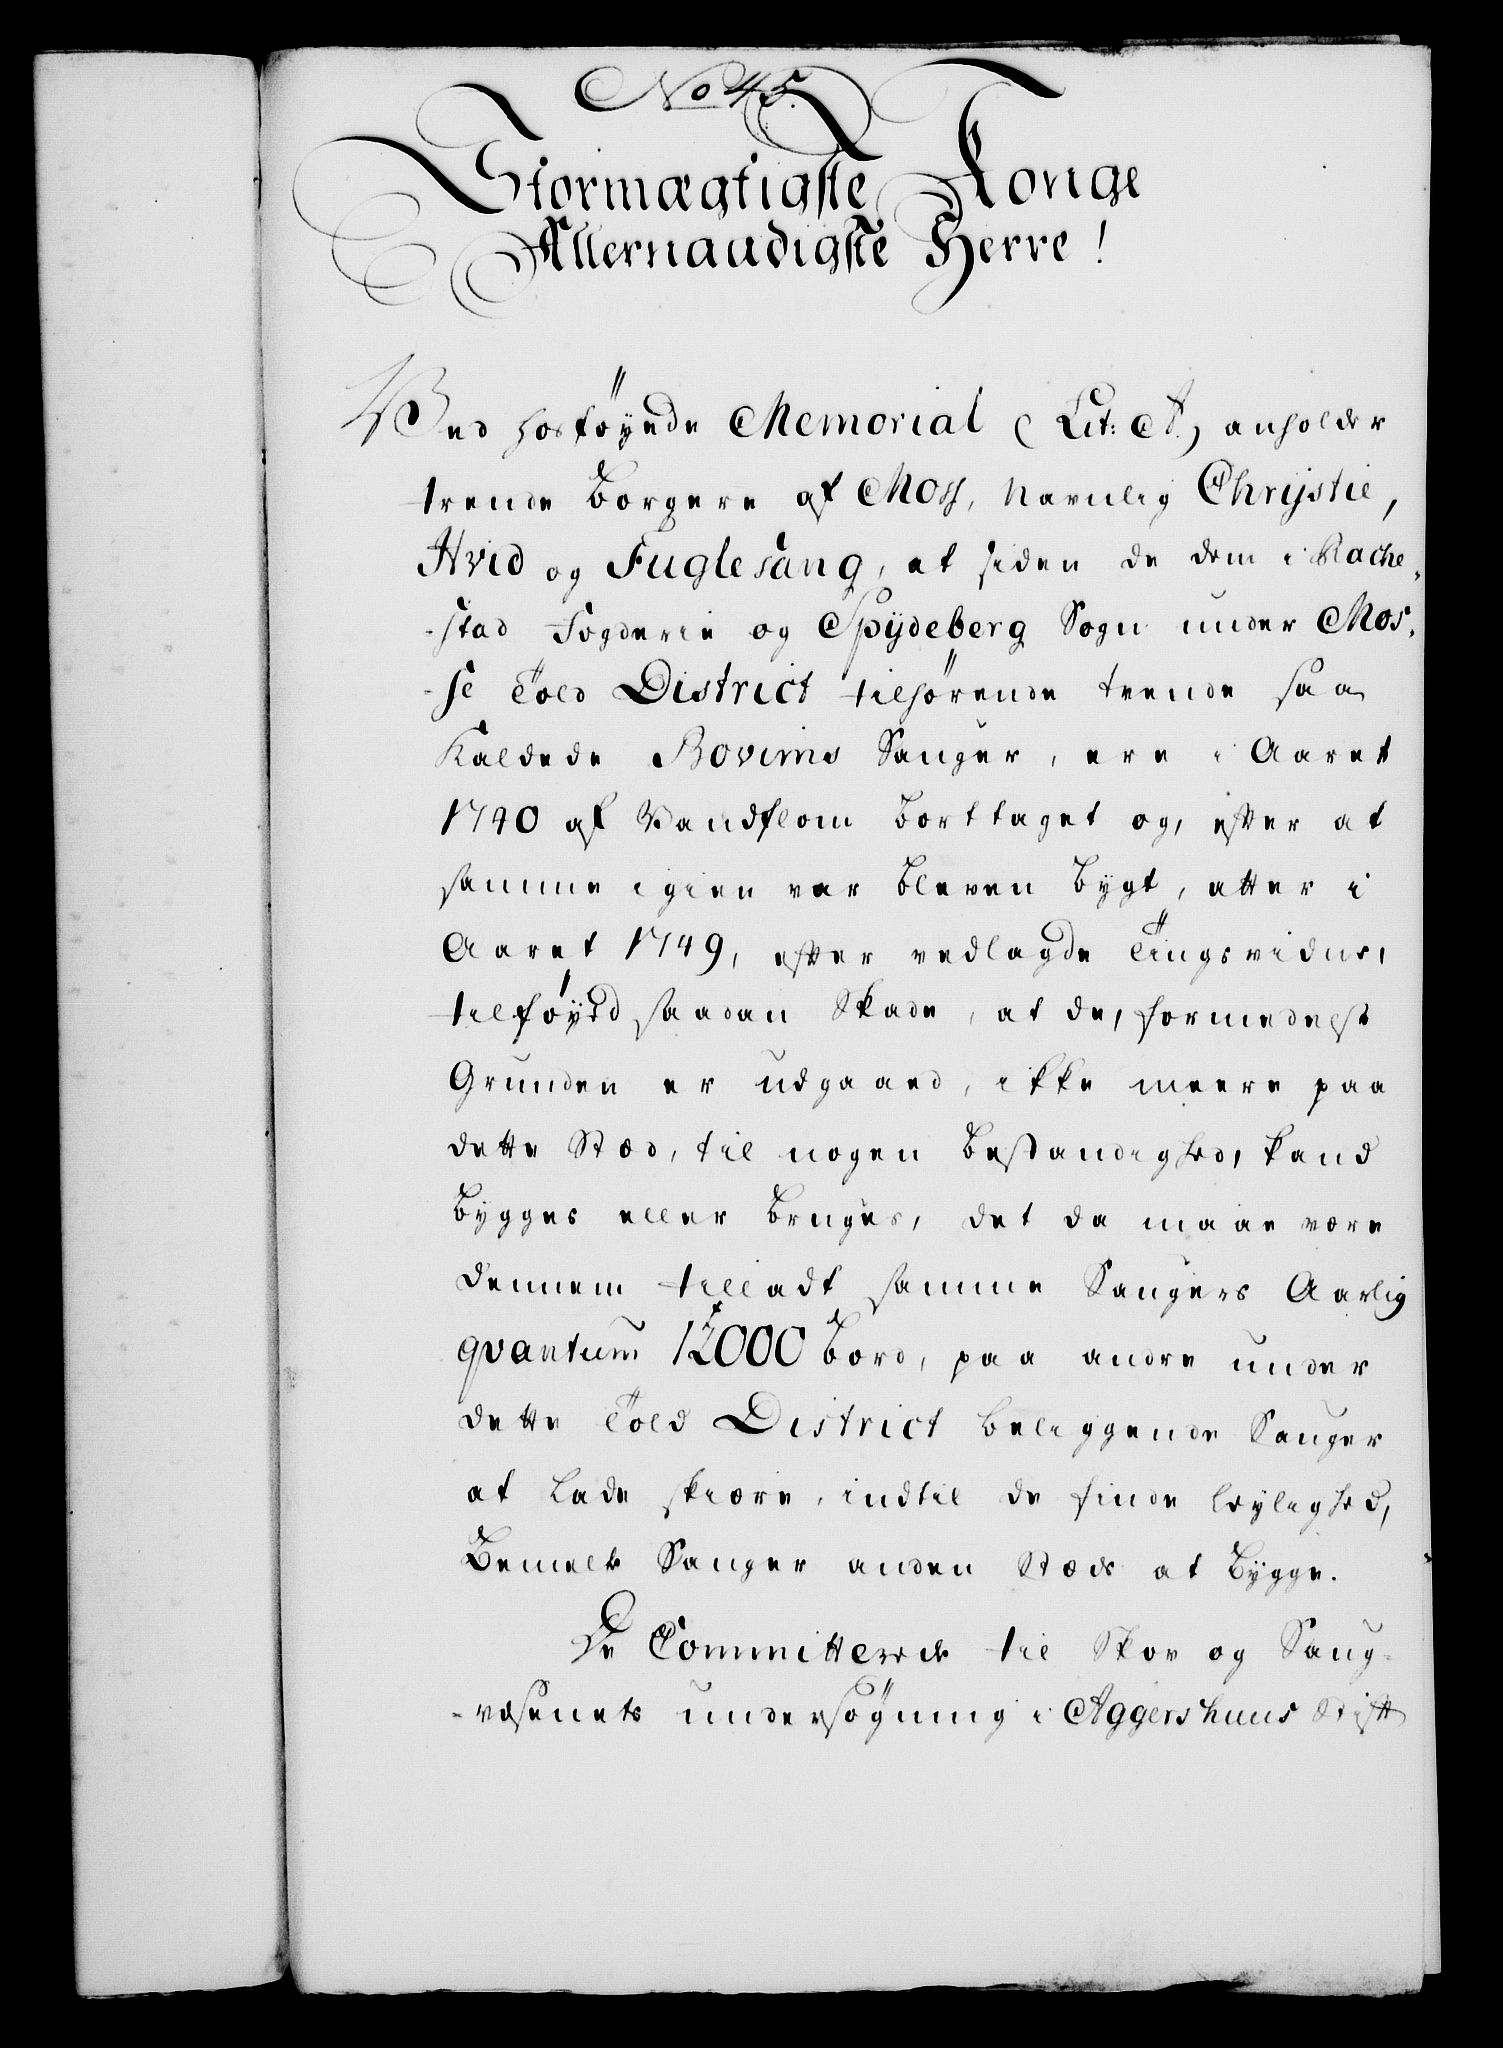 No 45.
Stormægtigste Konge
Allernaadigste Herre!
Ved hosføyede Memorial (Lit: A.) anholder
trende Borgere af Moss, Navnlig Chrystie,
Hvid og Fuglesang, at siden de dem i Rache-
-stad Fogderie og Spydeberg Sogn under Mos-
-se Told District tilhørende trende saa
Kaldede Bovims Sauger, ere i Aaret
1740 af Vandflom borttaget og, efter at
samme igien var bleven bygt, atter i
Aaret 1749, efter vedlagde Tingsvidne,
tilføyed saadan Skade, at de, formedelst
Grunden er udgaaed, ikke meere paa
dette Stæd, til nogen Bestandighed, kand
bygges eller bruges, det da maae være
dennem tilladt samme Saugers Aarlig
qvantum 12000 bord, paa andre under
dette Told District beliggende Sauger
at lade skiære, indtil de finde leylighed,
Bemelte Sauger anden Stæds at bygge.
De Committerede til Skov og Saug-
-væsenets undersøgning i Aggershuus Stift